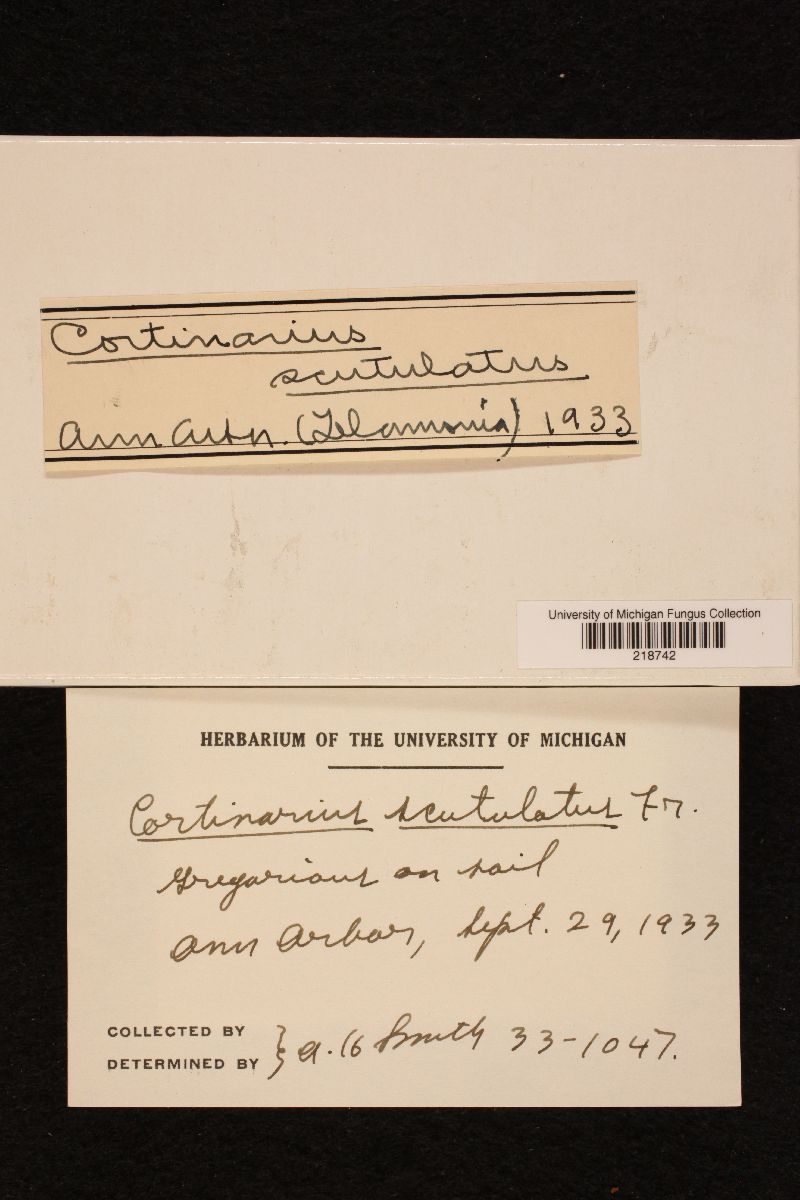 Cortinarius
scutulatus
Ann Arbor. (Telamonia) 1933
University of Michigan Fungus Collection
218742
HERBARIUM OF THE UNIVERSITY OF MICHIGAN
Cortinarius scutulatus Fr.
Gregarious on soil
Ann Arbor, Sept. 29, 1933
COLLECTED BY
DETERMINED BY } A. H. Smith 33-1047.